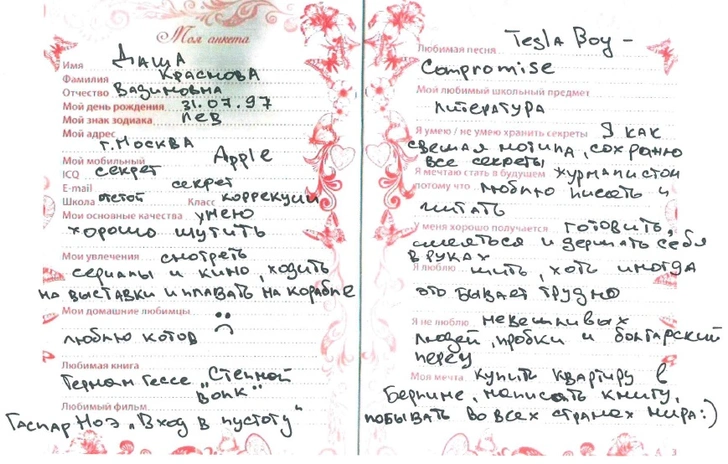 Моя анкета
Имя Даша
Фамилия Краснова
Отчество Вадимовна
Мой день рождения 31.07.97
Мой знак зодиака лев
Мой адрес
г. Москва
Мой мобильный Apple
ICQ секрет
E-mail секрет
Школа отстой Класс коррекции
Мои основные качества умею
хорошо шутить
Мои увлечения смотреть
сериалы и кино, ходить
на выставки и плавать на корабле
Мои домашние любимцы :(
люблю котов
Любимая книга
Герман Гессе „Степной
волк"
Любимый фильм
Гаспар Ноэ „Вход в пустоту"
Любимая песня Tesla Boy -
Compromise
Мой любимый школьный предмет
литература
Я умею / не умею хранить секреты Я как
свежая могила, сохраняю
все секреты
Я мечтаю стать в будущем журналистом
потому что люблю писать и
читать
У меня хорошо получается готовить,
смеяться и держать себя
в руках
Я люблю жить, хоть иногда
это бывает трудно
Я не люблю невежливых
людей, пробки и болгарский
перец
Моя мечта купить квартиру в
Берлине, написать книгу,
побывать во всех странах мира:)
3